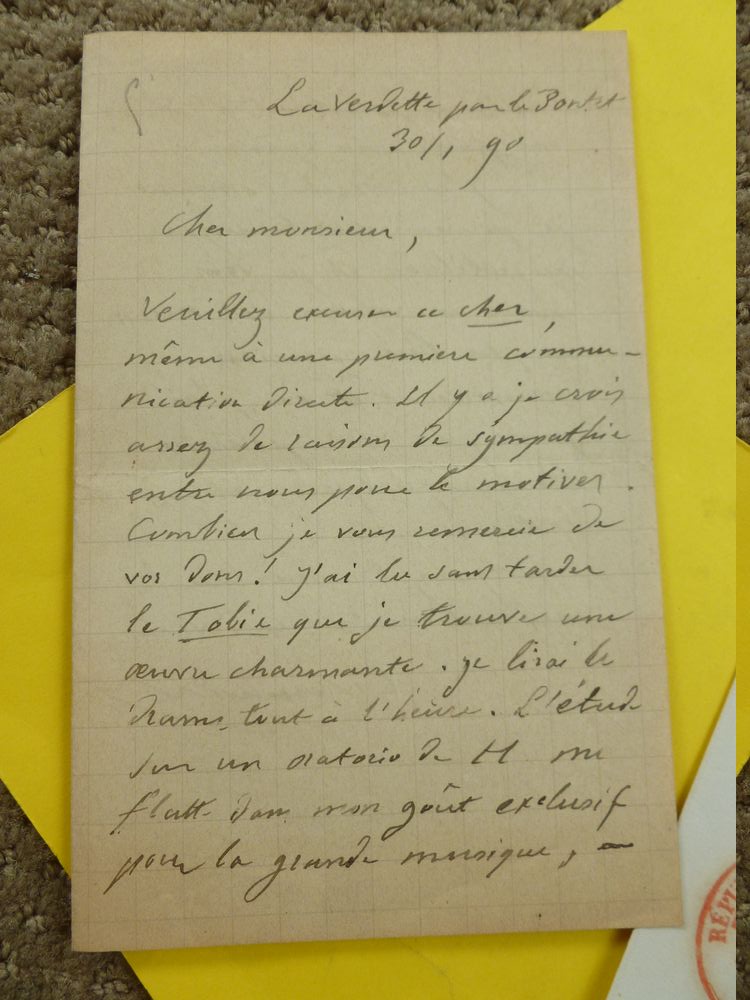 La Verdette par le Pontet
30/1 90
Cher monsieur,
Veuillez excuser ce cher,
même à une première commu-
nication directe. Il y a je crois
assez de raisons de sympathie
entre nous pour le motiver.
Combien je vous remercie de
vos dons! J'ai lu sans tarder
le Tobie que je trouve une
œuvre charmante. Je lirai le
drame tout à l'heure. L'étude
sur un oratorio de H me
flatte dans mon goût exclusif
pour la grande musique, —
RÉPU